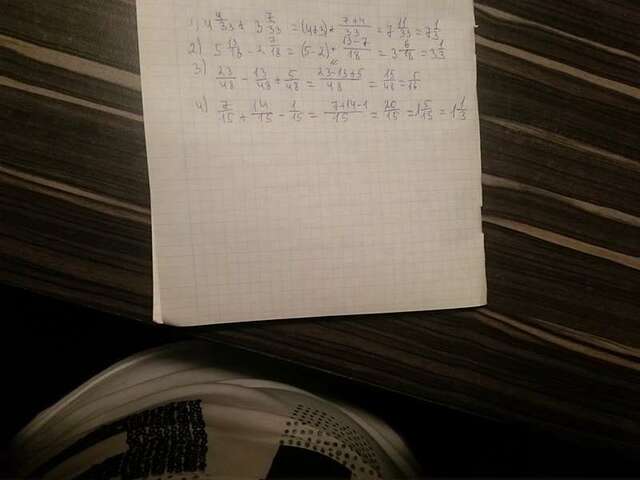 1) 4 4/33 + 3 7/33 = (4+3) + (7+4)/33 = 7 11/33 = 7 1/3
2) 5 13/18 - 2 7/18 = (5-2) + (13-7)/18 = 3 6/18 = 3 1/3
3) 23/48 - 13/48 + 5/48 = (23-13+5)/48 = 15/48 = 5/16
4) 7/15 + 14/15 - 1/15 = (7+14-1)/15 = 20/15 = 1 5/15 = 1 1/3